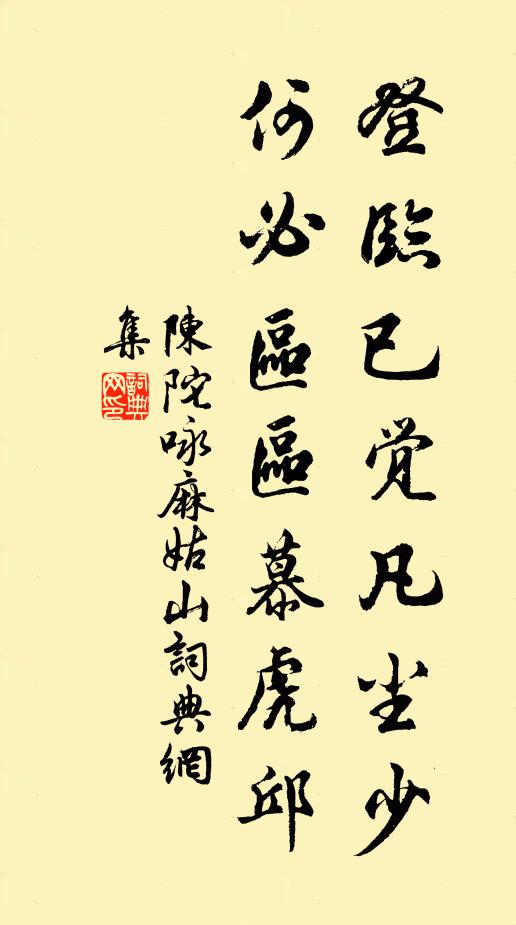 登臨已觉凡尘少
何必區區慕虎邱
陳陀咏麻姑山詞典網
集
詞典
网印